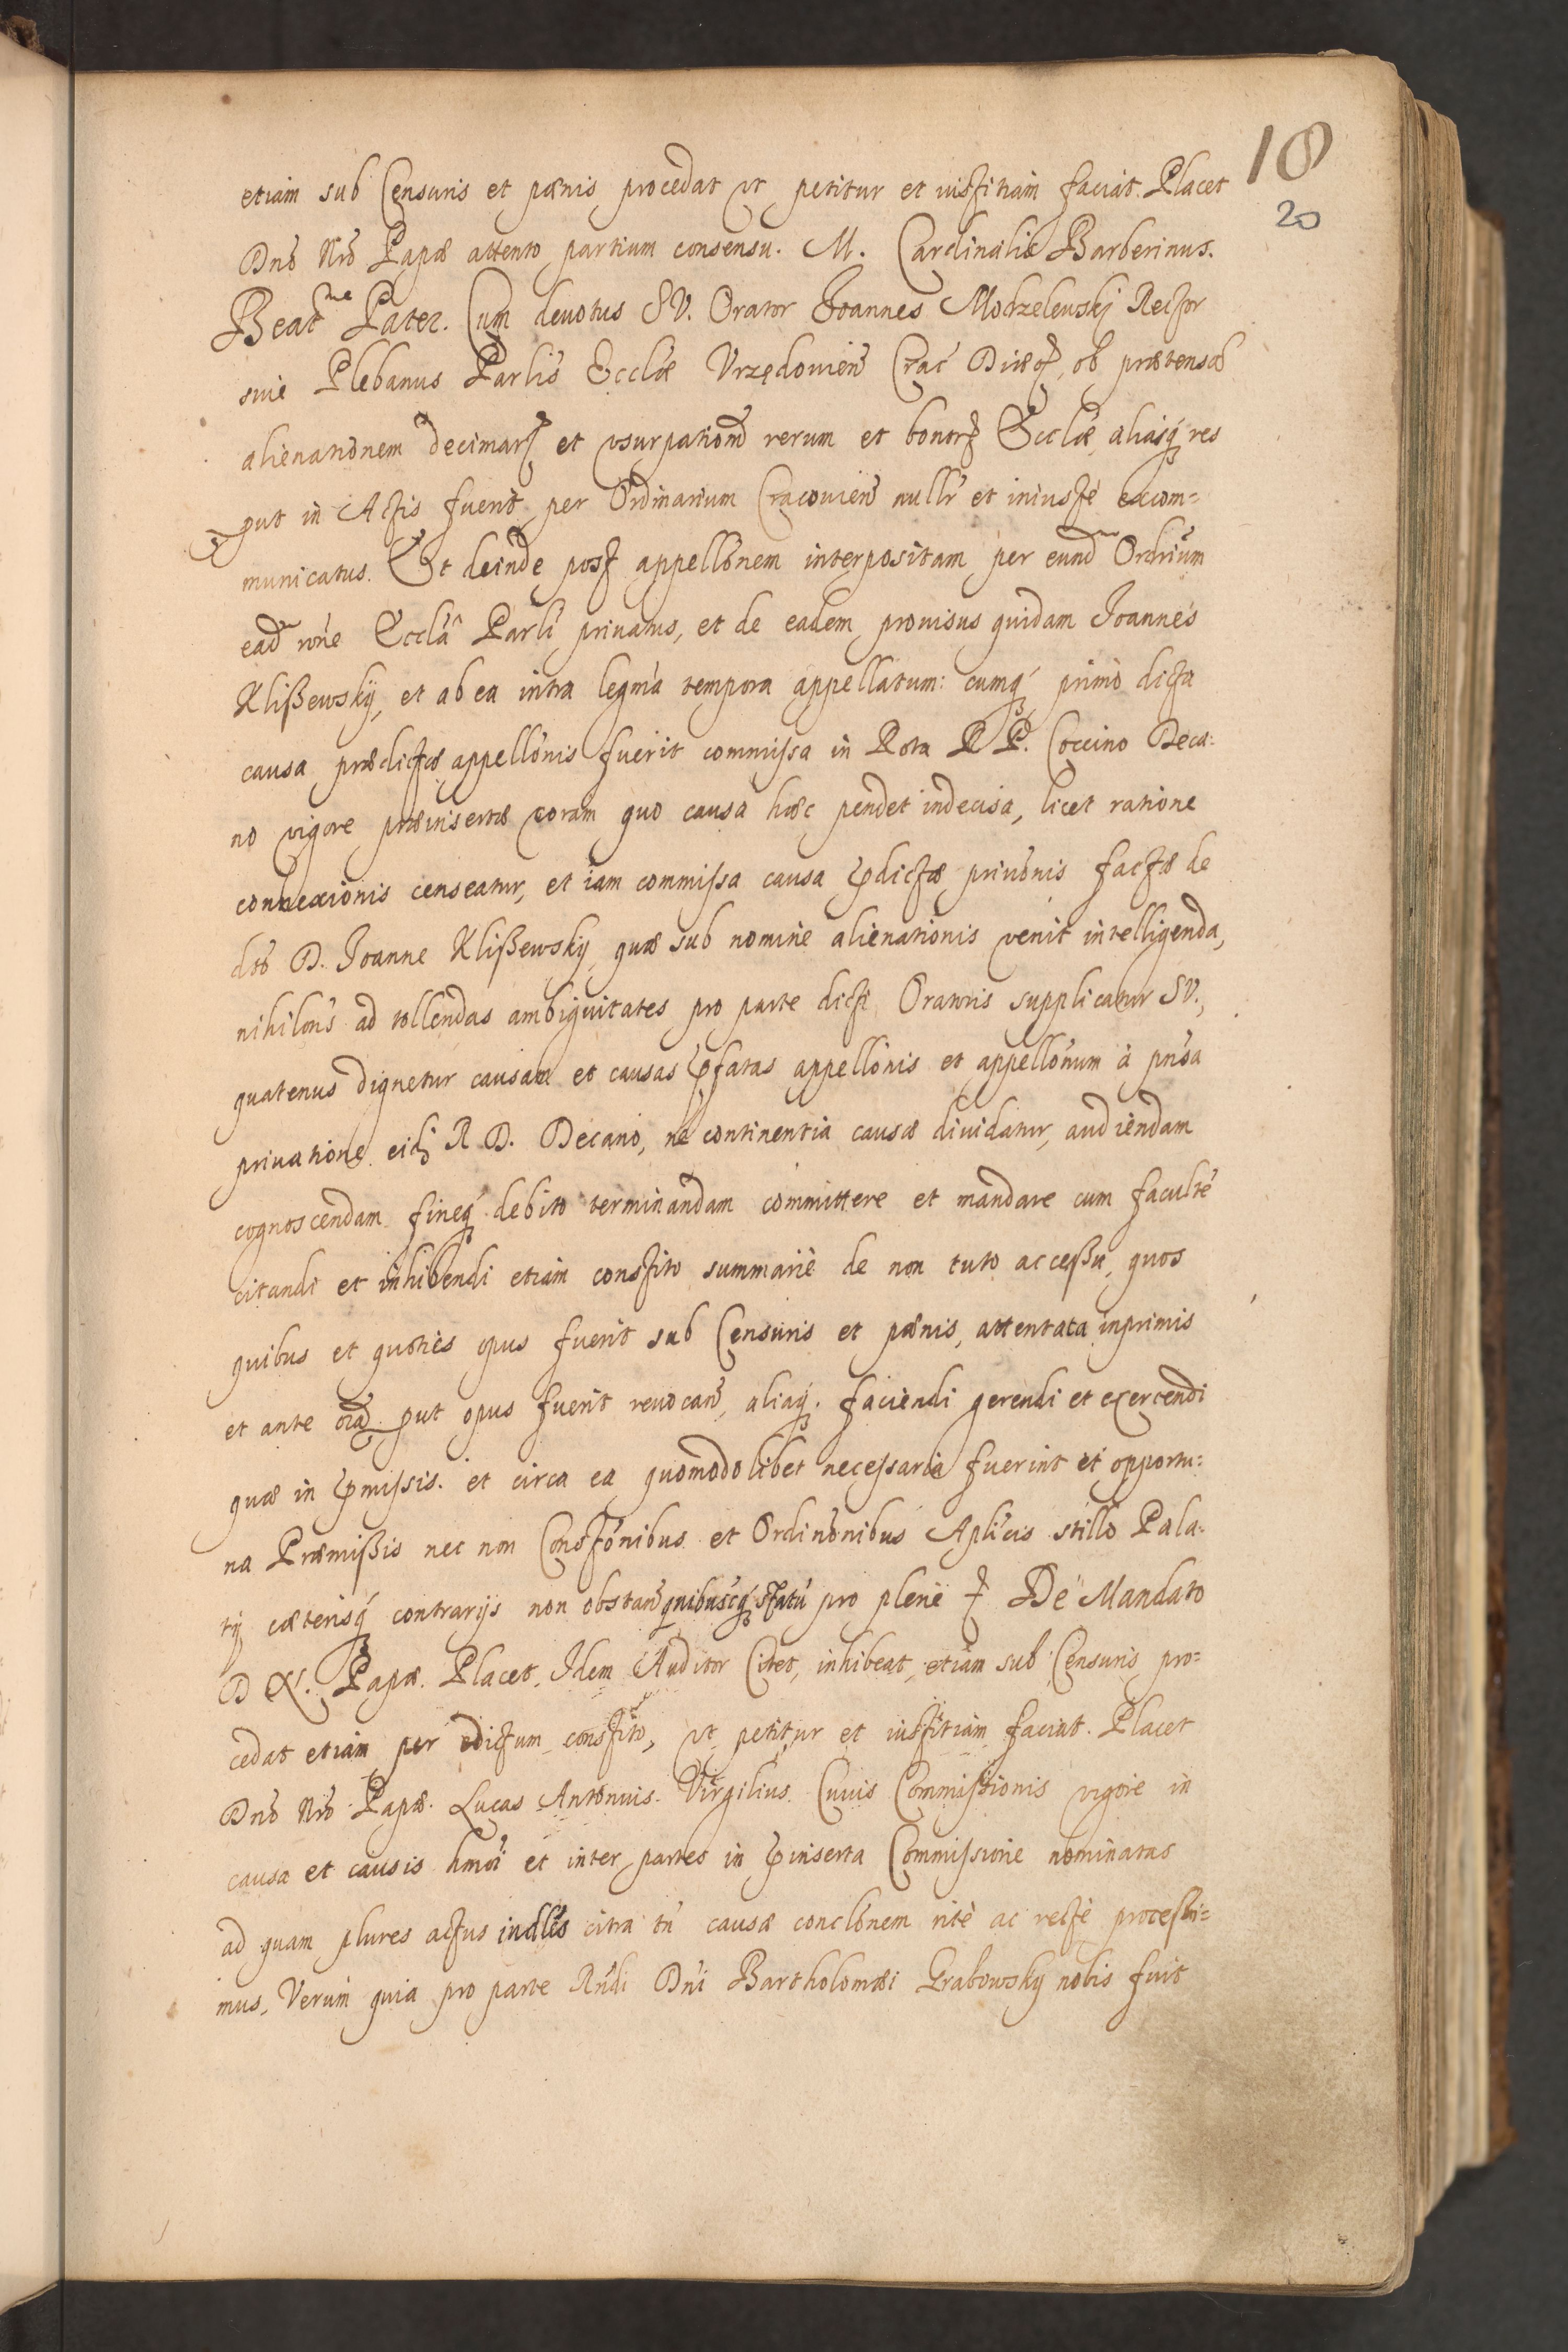 18
20
etiam sub Censuris et pœnis procedat vt petitur et iustitiam faciat. Placet
Dn̄o Nr̄o Papæ attento partium consensu. M. Cardinalis Barberinus.
Beatme Pater. Cum deuotus SV. Orator Joannes Modrzelewskj Rector
siue Plebanus Parlis Eccliæ Vrzędouien Crac Diæc, ob prætensā
alienationem decimarꝝ et vsurpationē rerum et bonorꝝ Eccliæ, aliasq́ res
ꝓut in Actis fuerit per Ordinarium Cracouien nullr et iniustè excom=
municatus. Et deinde post appellonem interpositam per eund Ordrium
ead rōne Ecclā Parli priuatus, et de eadem prouisus quidam Joannes
Klißewskÿ, et ab ea intra legmā tempora appellatum: cumq́ primò dicta
causa prædictæ appellonis fuerit commissa in Rota R P. Coccino Deca=
no vigore præinsertæ coram quo causa hæc pendet indecisa, licet ratione
connexionis censeatur, et iam commissa causa p̄dictæ priuonis factæ de
dco D. Joanne Klißewskÿ quæ sub nomine alienationis venit intelligenda,
nihilons ad tollendas ambiguitates pro parte dicti Oratoris supplicatur SV.,
quatenus dignetur causam et causas p̄fatas appellonis et appellonum à pnsa
priuatione eidꝫ R D. Decano, ne continentia causæ diuidatur, audiendam
cognoscendam fineq́ debito terminandam committere et mandare cum faculte
citandi et inhibendi etiam constito summariè de non tuto accessu, quos
quibus et quoties opus fuerit sub Censuris et pœnis, attentata inprimis
et ante oia ꝓut opus fuerit reuocan, aliaq́. faciendi gerendi et exercendi
quæ in p̄missis. et circa ea quomodolibet necessaria fuerint et opportu=
na Præmißis nec non Constonibus et Ordinonibus Aplicis stillo Pala=
tij cæterisq́ contrarijs non obstan quibuscq́ statū pro plenè ꝛ De Mandato
D N. Papæ. Placet. Idem Auditor Citet, inhibeat, etiam sub Censuris pro=
cedat etiam per edictum constito, vt petitur et iustitiam faciat. Placet
Dn̄o Nr̄o Papæ. Lucas Antonius Virgilius. Cuius Commissionis vigore in
causa et causis hmōi et inter partes in p̄inserta Commissione nominatas
ad quam plures actus indles citra tn̄ causæ conclonem ritè ac rectè processi=
mus, Verum quia pro parte Rndi Dni Bartholomæi Grabowskÿ nobis fuit